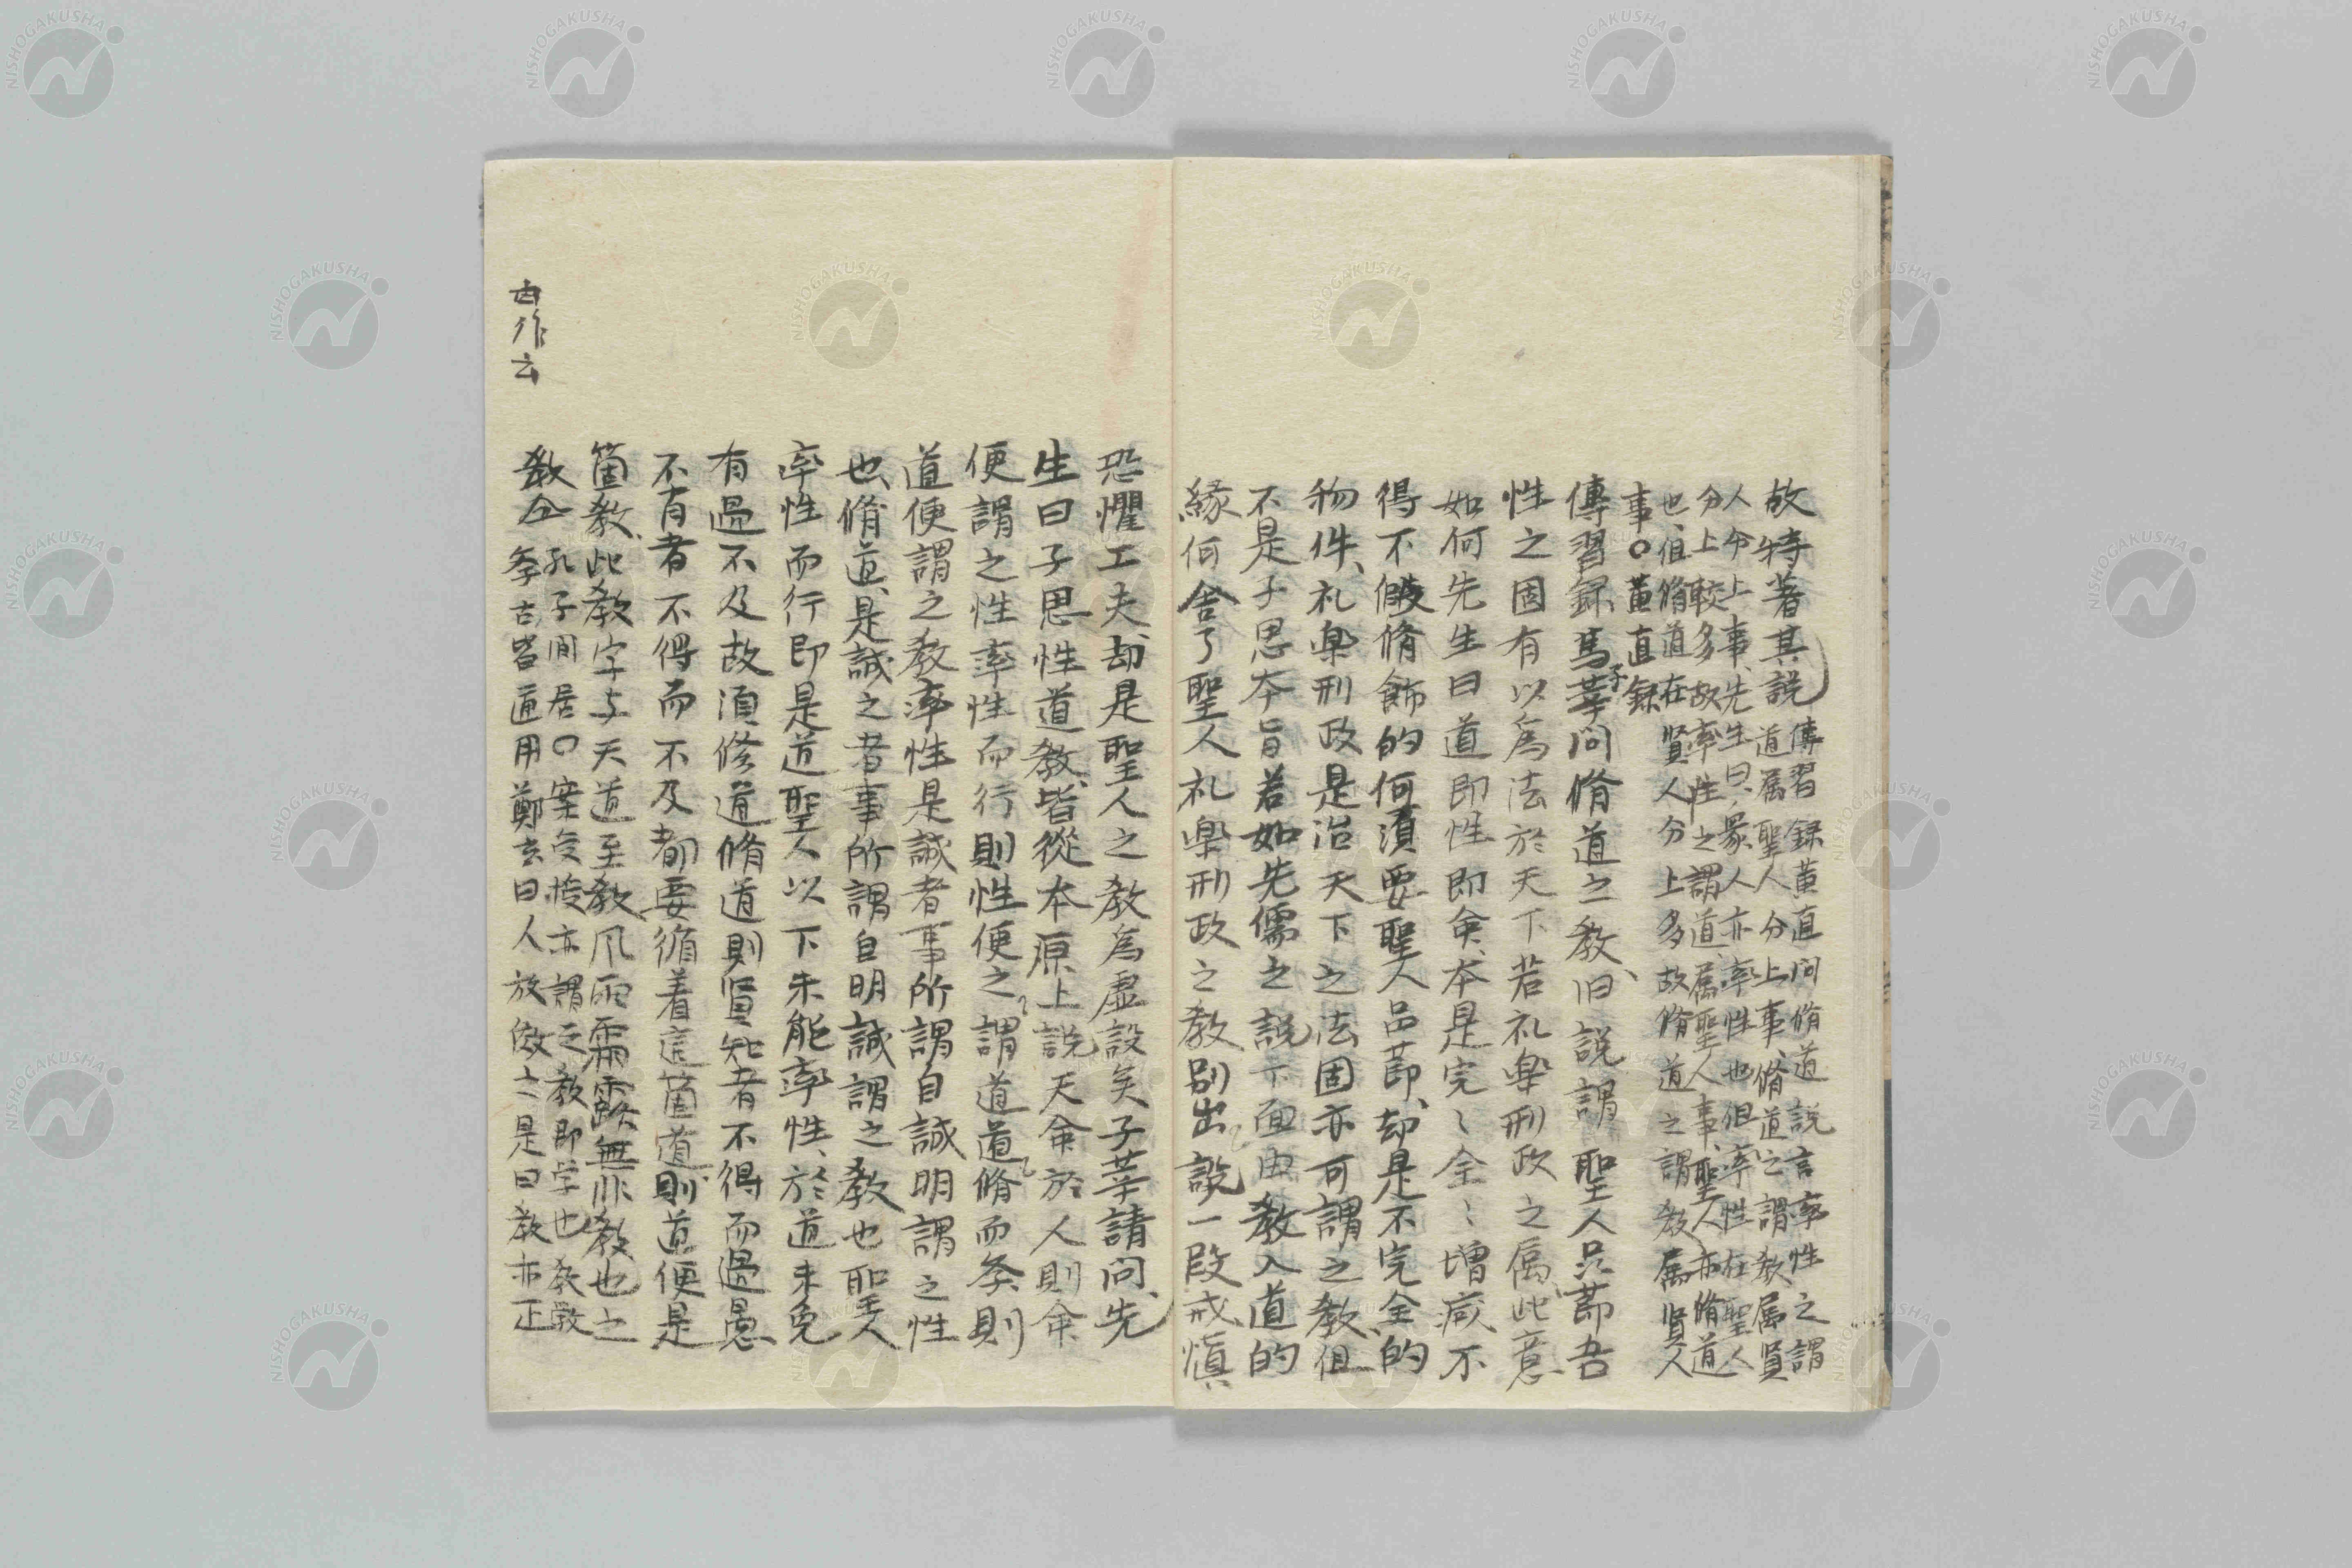 故特著其説
傳習録黄直問脩道説言率性之謂
道属聖人分上事、脩道之謂教属賢
人分上事、先生曰、衆人亦率性也但率性在聖人
分上較多故率性之謂道、属聖人事、聖人亦脩道
也、但脩道在賢人分上多故脩道之謂教属賢人
事〇黄直録
傳習録馬子莘問脩道之教、旧説謂聖人品節吾
性之固有以為法於天下若礼楽刑政之属此意
如何先生曰道即性即命、本是完〻全〻増减不
得不假脩飾的何須要聖人品節、却是不完全的
物件、礼楽刑政是治天下之法固亦可謂之教、但
不是子思本旨若如先儒之説下面由教入道的
縁何舎了聖人礼楽刑政之教別出説一段戒慎
恐懼工夫、却是聖人之教為虚設矣子莘請問、先
生曰子思性道教、皆從本原上説天命於人則命
便謂之性率性而行則性便之謂道道脩而条則
道便謂之教率性是誠者事所謂自誠明謂之性
也、脩道是誠之者事所謂自明誠謂之教也聖人
率性而行即是道聖人以下未能率性、於道未免
有過不及故須修道脩道則賢知者不得而過愚
不肖者不得而不及都要循着這箇道則道便是
箇教、此教字与天道至教、风雨霜露無非教也之
教仝
孔子間居〇案受授亦謂之教即学也教斅
古皆通用鄭玄曰人放傚之是曰教亦正
NISHOGAKUSHA